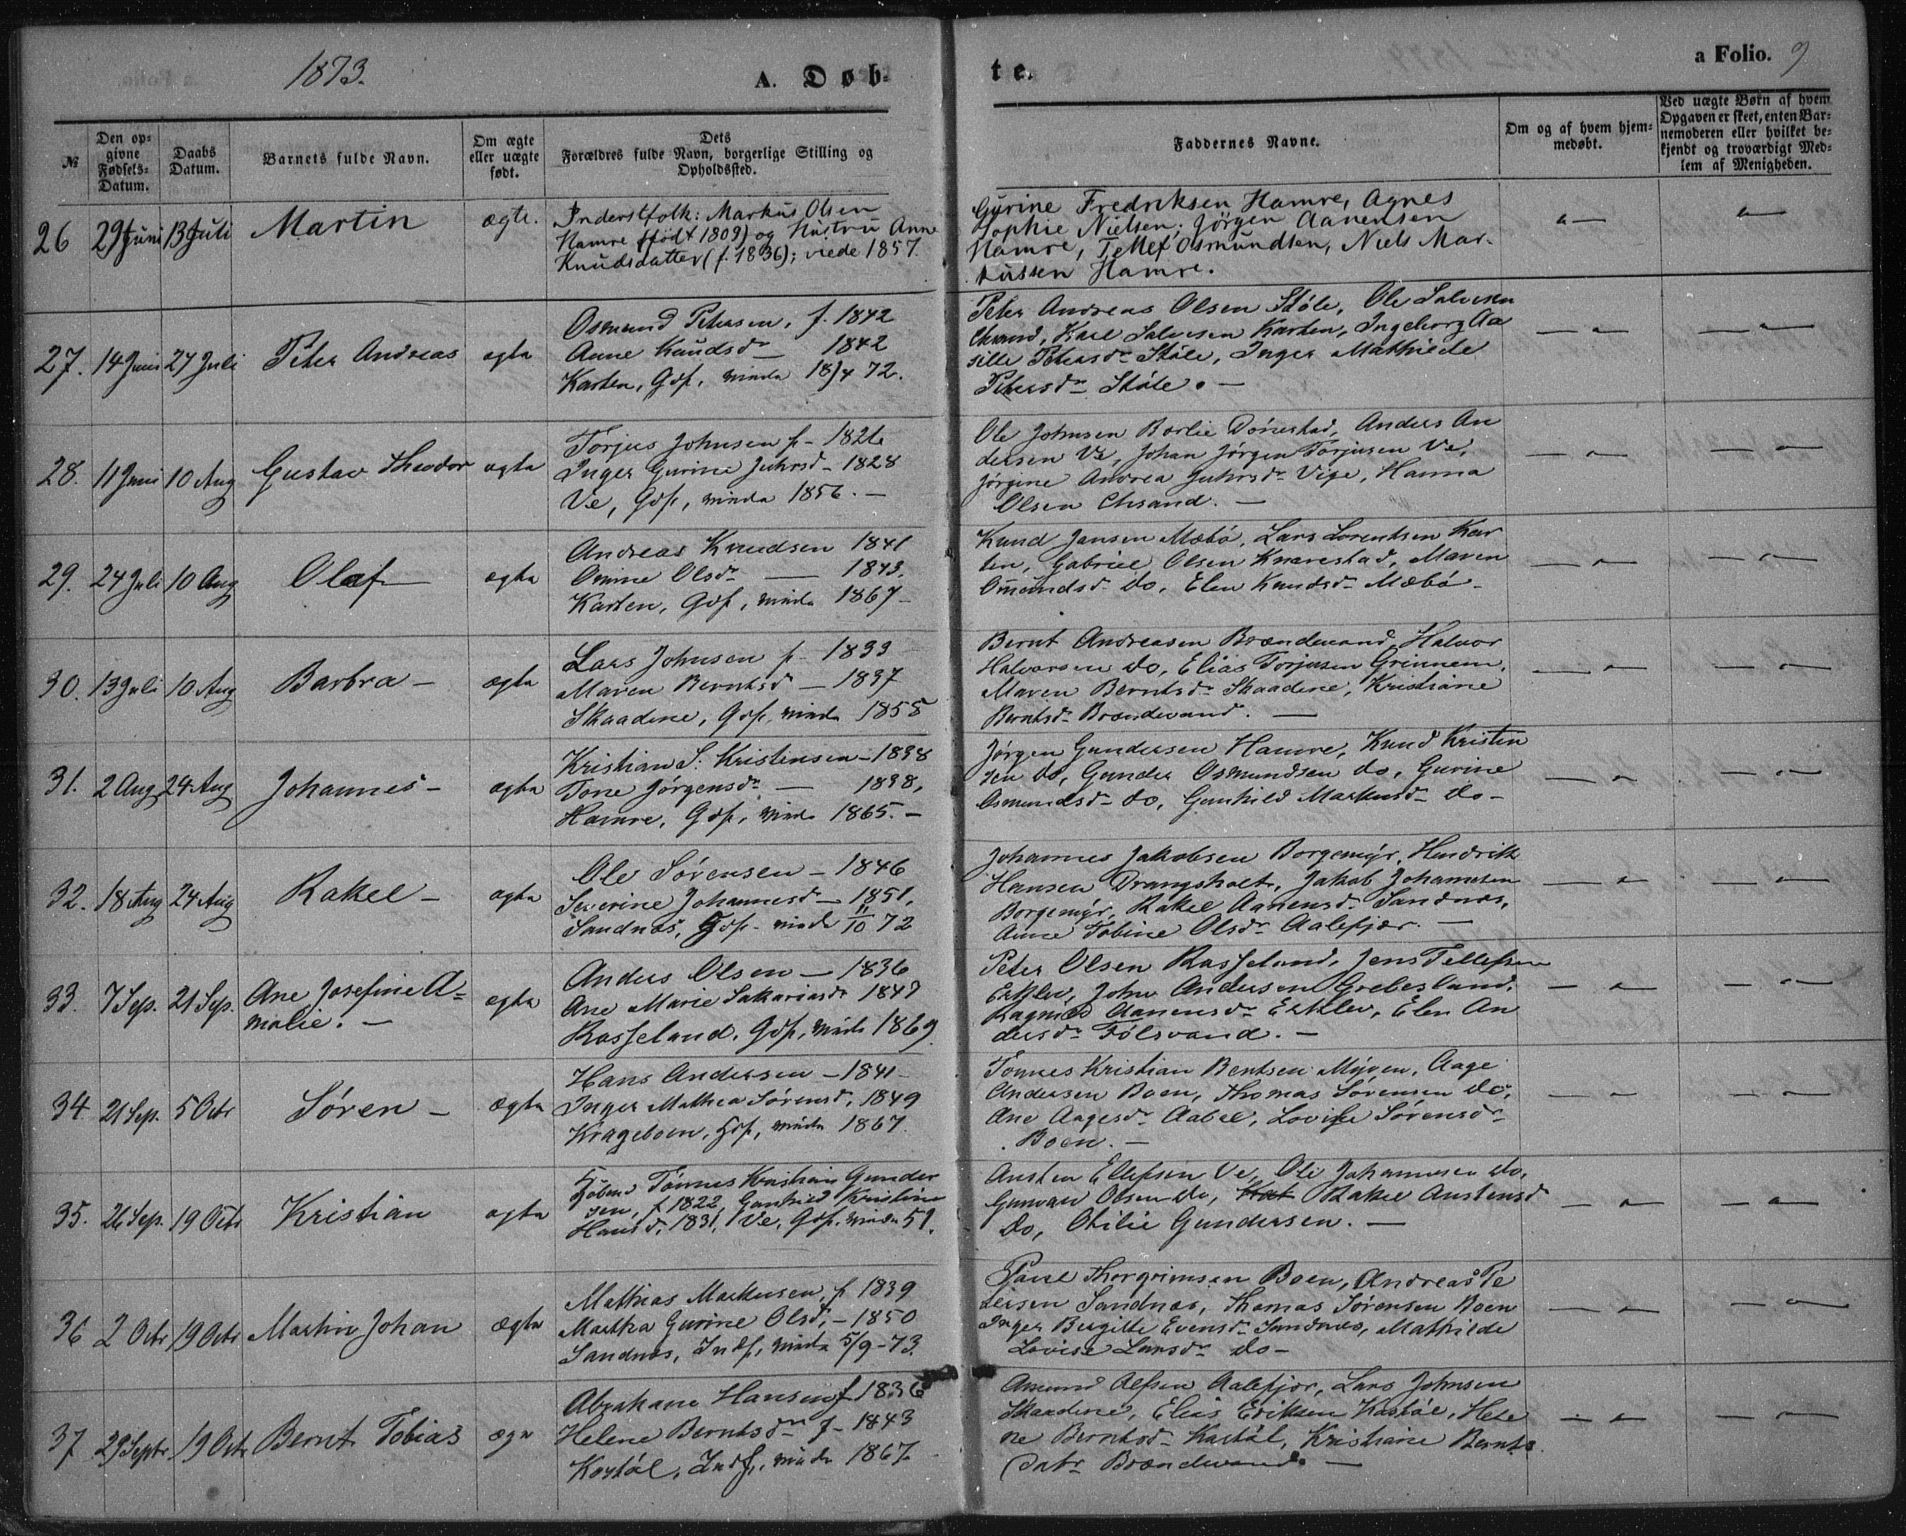 1873.
A. Døb-
te.
a Folio. 9
№
Den op-
givne
Fødsels-
Datum.
Daabs
Datum.
Barnets fulde Navn.
Om ægte
eller uægte
født.
Dets
Forældres fulde Navn, borgerlige Stilling og
Opholdssted.
Faddernes Navne.
Om og af hvem hjem-
medøbt.
Ved uægte Børn af hvem
Opgaven er skeet, enten Bar-
nemoderen eller hvilket be-
kjendt og troværdigt Med-
lem af Menigheden.
26 29 Juni 13 Juli Martin ægte.
Inderstfolk: Markus Olsen
Hamre (født 1809) og Hustru Anne
Knudsdatter (f. 1836); viede 1857.
Gurine Fredriksen Hamre, Agnes
Sophie Nielsen; Jørgen Aanensen
Hamre, Tellef Osmundsen, Niels Mar-
kussen Hamre.
27. 14 Juni 27 Juli Peter Andreas ægte
Osmund Petersen, f. 1842
Anne Knudsdr — 1842
Karten, Gdf, viede 18/4 72.
Peter Andreas Olsen Støle, Ole Salvesen
Chrsand, Karl Salvesen Karten, Ingeborg Aa
sille Petersdr Støle, Inger Mathilde
Petersdr Støle. —
28. 11 Juni 10 Aug Gustav Theodor ægte
Torjus Johnsen f. 1826
Inger Gurine Juhrsd — 1828
Ve, Gdf, viede 1856. —
Ole Johnsen Borlie Dønestad, Anders An
dersen Ve, Johan Jørgen Torjusen Ve,
Jørgine Andrea Juhrsdr Vige, Hanna
Olsen Chrsand. —
29. 24 Juli 10 Aug Olaf — ægte
Andreas Knudsen 1841
Omine Olsdr — 1843.
Karten, Gdf, viede 1867 —
Knud Jansen Mæbø, Lars Lorentsen Kar
ten, Gabriel Olsen Knarestad, Maren
Omundsdr do, Elen Knudsdr Mæbø —
30. 13 Juli 10 Aug Barbra — ægte
Lars Johnsen f — 1833
Maren Berntsd — 1837
Skaadene, Gdf, viede 1858
Bernt Andreasen Brændevand, Halvor
Halvorsen do, Elias Torjusen Grinnem,
Maren Berntsdr Skaadene, Kristiane
Berntsdr Brændevand. —
31. 2 Aug 24 Aug Johannes — ægte
Kristian S. Kristensen — 1838
Tone Jørgensdr — 1838,
Hamre, Gdf, viede 1865. —
Jørgen Gundersen Hamre, Knud Kristen
sen do, Gunder Osmundsen do, Gurine
Osmundsdr do, Gunhild Markusdr do —
32. 18 Aug 24 Aug Rakel — ægte
Ole Sørensen — 1846
Severine Johannesd — 1851,
Sandnæs, Gdf. viede 11/10 72
Johannes Jakobsen Borgemyr, Hendrik
Hansen Drangsholt, Jakob Johannesen
Borgemyr, Rakel Aanensd Sandnæs,
Anne Tobine Olsdr Aalefjær. —
33. 7 Sep. 21 Sep. Ane Josefine A=
malie. — ægte
Anders Olsen — 1836
Ane Marie Sakariasdr 1847
Rosseland, Gdf, viede 1869.
Peter Olsen Rosseland, Jens Tellefsen
Erklev, John Andersen Grebesland,
Ragnild Aanensdr Erklev, Elen An
dersdr Følsvand. —
34 21 Sep. 5 Octr Søren — ægte
Hans Andersen — 1841 —
Inger Mathea Sørensd. 1849
Krageboen, Gdf, viede 1867.
Tønnes Kristian Berntsen Myren, Aage
Andersen Boen, Thomas Sørensen do,
Ane Aagesdr Aabel, Lovise Sørensdr
Boen. —
35. 26 Sep. 19 Octr Kristian ægte
Tønnes Kristian Gunder
sen, f 1822, Gunhild Kristine
Hansd. 1831, Ve, Gdf, viede 51.
Austen Ellefsen Ve, Ole Johannesen do,
Gunvan Olsen do, Rakel Austensd
do, Otilie Gundersen. —
36 2 Octr 19 Octr Martin Johan ægte
Mathias Markusen, f 1839
Martha Gurine Olsd. — 1850
Sandnæs, Indf, viede 5/9 — 73.
Paul Thorgrimsen Boen, Andreas Pe
tersen Sandnæs, Thomas Sørensen Boen
Inger Birgitte Evensdr Sandnæs, Mathilde
Lovise Larsdr do —
37. 29 Septr 19 Octr Bernt Tobias ægte
Abraham Hansen f 1836
Helene Berntsdr f — 1843
Kostøl, Indf, viede 1867.
Amund Alfsen Aalefjær, Lars Johnsen
Skaadene, Elias Eriksen Kostøl, Hele
ne Berntsdr Kostøl, Kristiane Bernts
datr Brændevand. —